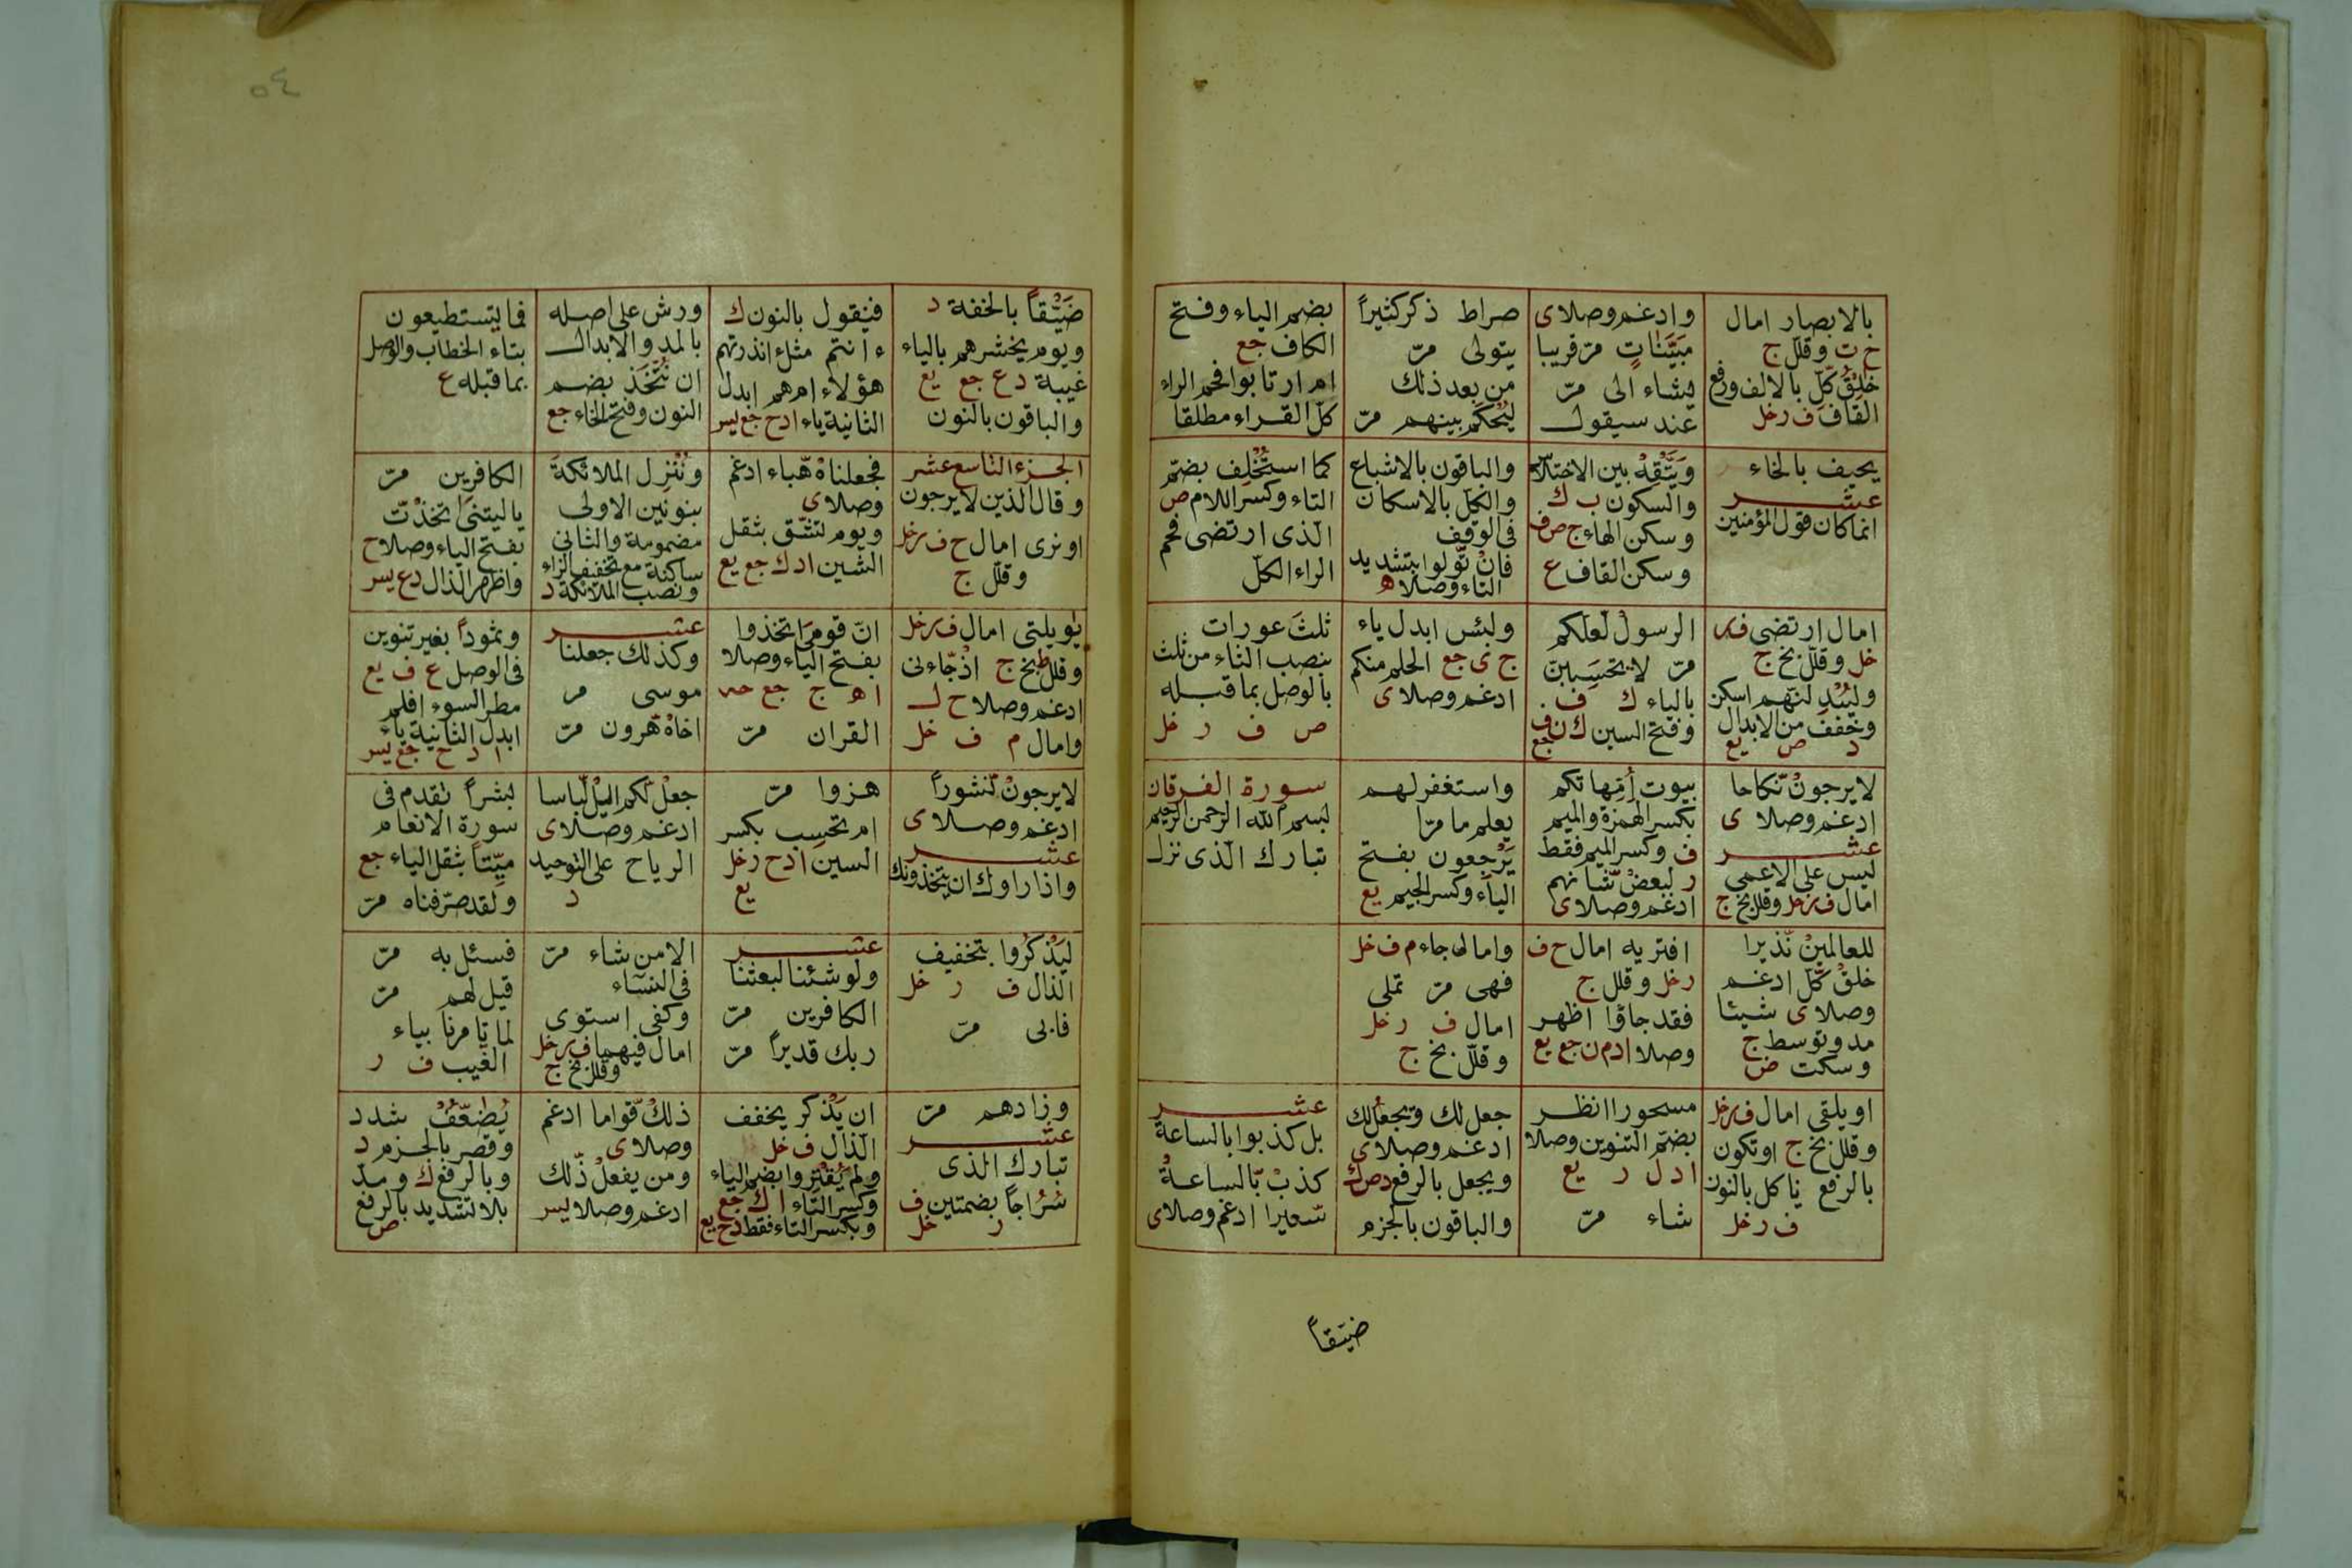 بالابصار امال
ح ت وقلل ج
خلق كل بالالف ورفع
القاف ف ر خل
وادغم وصلا ى
مبينات مر قريبا
يشاء الى مر
عند سيقول
صراط ذكر كثيرا
يتولى مر
من بعد ذلك
ليحكم بينهم مر
بضم الياء وفتح
الكاف جع
ام ارتابوا فخم الراء
كل القراء مطلقا
يحيف بالخاء
عشر
انما كان قول المؤمنين
ويتقه بين الاختلاس
والسكون ب ك
وسكن الهاء ج ص ف
وسكن القاف ع
والباقون بالاشباع
والكل بالاسكان
فى الوقف
فان تولوا بتشديد
التاء وصلا ه
كما استخلف بضم
التاء وكسر اللام ص
الذى ارتضى فخم
الراء الكل
امال ارتضى ف ر
خل وقلل بخ ج
وليبدلنهم اسكن
وخفف من الابدال
د ص يع
الرسول لعلكم
مر لا يحسبن
بالياء ك ف
وفتح السين ك ن ف
جع
ولبئس ابدل ياء
ج ى جع الحلم منكم
ادغم وصلا ى
ثلث عورات
بنصب الثاء من ثلث
بالوصل بما قبله
ص ف ر خل
لا يرجون نكاحا
ادغم وصلا ى
عشر
ليس على الاعمى
امال ف ر خل وقلل بخ ج
بيوت امهاتكم
بكسر الهمزة والميم
ف وكسر الميم فقط
ر لبعض شانهم
ادغم وصلا ى
واستغفر لهم
يعلم ما مرا
يرجعون بفتح
الياء وكسر الجيم يع
سورة الفرقان
بسم الله الرحمن الرحيم
تبارك الذى نزل
للعالمين نذيرا
خلق كل ادغم
وصلا ى شيئا
مد وتوسط ج
وسكت ض
افتريه امال ح ف
ر خل وقلل ج
فقد جاؤا اظهر
وصلا ا د م ن جع يع
وامال جاء م ف خل
فهى مر تملى
امال ف ر خل
وقلل بخ ج
او يلقى امال ف ر خل
وقلل بخ ج او تكون
بالرفع ناكل بالنون
ف ر خل
مسحورا انظر
بضم التنوين وصلا
ا د ل ر يع
شاء مر
جعل لك ويجعل لك
ادغم وصلا ى
ويجعل بالرفع د ص ك
والباقون بالجزم
عشر
بل كذبوا بالساعة
كذب بالساعة
سعيرا ادغم وصلا ى
ضيقا
٥٤
ضيقا بالخفة د
ويوم يحشرهم بالياء
غيبة د ع جع يع
والباقون بالنون
فنقول بالنون ك
ءانتم مثلء انذرتهم
هؤلاء ام هم ابدل
الثانية ياء ا د ح جع يسر
ورش على اصله
بالمد والابدال
ان نتخذ بضم
النون وفتح الخاء جع
فما يستطيعون
بتاء الخطاب والوصل
بما قبله ع
الجزء التاسع عشر
وقال الذين لا يرجون
او نرى امال ح ف ر خل
وقلل ج
فجعلناه هباء ادغم
وصلا ى
ويوم تشقق بثقل
الشين ا د ك جع يع
وننزل الملائكة
بنونين الاولى
مضمومة والثانى
ساكنة مع تخفيف الزاء
ونصب الملائكة د
الكافرين مر
يا ليتنى اتخذت
بفتح الياء وصلا ح
واظهر الذال د ع يسر
يويلتى امال ف ر خل
وقلل ط بخ ج اذ جاءنى
ادغم وصلا ح ل
وامال م ف خل
ان قومى اتخذوا
بفتح الياء وصلا
ا ه ج جع حه
القران مر
عشر
وكذلك جعلنا
موسى مر
اخاه هرون مر
وثمودا بغير تنوين
فى الوصل ع ف يع
مطر السوء افلم
ابدل الثانية ياء
ا د ح جع يسر
لا يرجون نشورا
ادغم وصلا ى
عشر
واذا راوك ان يتخذونك
هزوا مر
ام تحسب بكسر
السين ا د ح ر خل
يع
جعل لكم اليل لباسا
ادغم وصلا ى
الرياح على التوحيد
د
بشرا تقدم فى
سورة الانعام
ميتا بثقل الياء جع
ولقد صرفناه مر
ليذكروا بتخفيف
الذال ف ر خل
فابى مر
عشر
ولو شئنا لبعثنا
الكافرين مر
ربك قديرا مر
الا من شاء مر
فى النساء
وكفى استوى
امال فيهما ف ر خل
وقلل بخ ج
فسئل به مر
قيل لهم مر
لما تامرنا بياء
الغيب ف ر
وزادهم مر
عشر
تبارك الذى
سراجا بضمتين ف
ر خل
ان يذكر يخفف
الذال ف خل
ولم يقتروا بضم الياء
وكسر التاء ا ك جع
وبكسر التاء فقط د ح يع
ذلك قواما ادغم
وصلا ى
ومن يفعل ذلك
ادغم وصلا يسر
يضعف شدد
وقصر بالجزم د
وبالرفع ك ومد
بلا تشديد بالرفع
ص